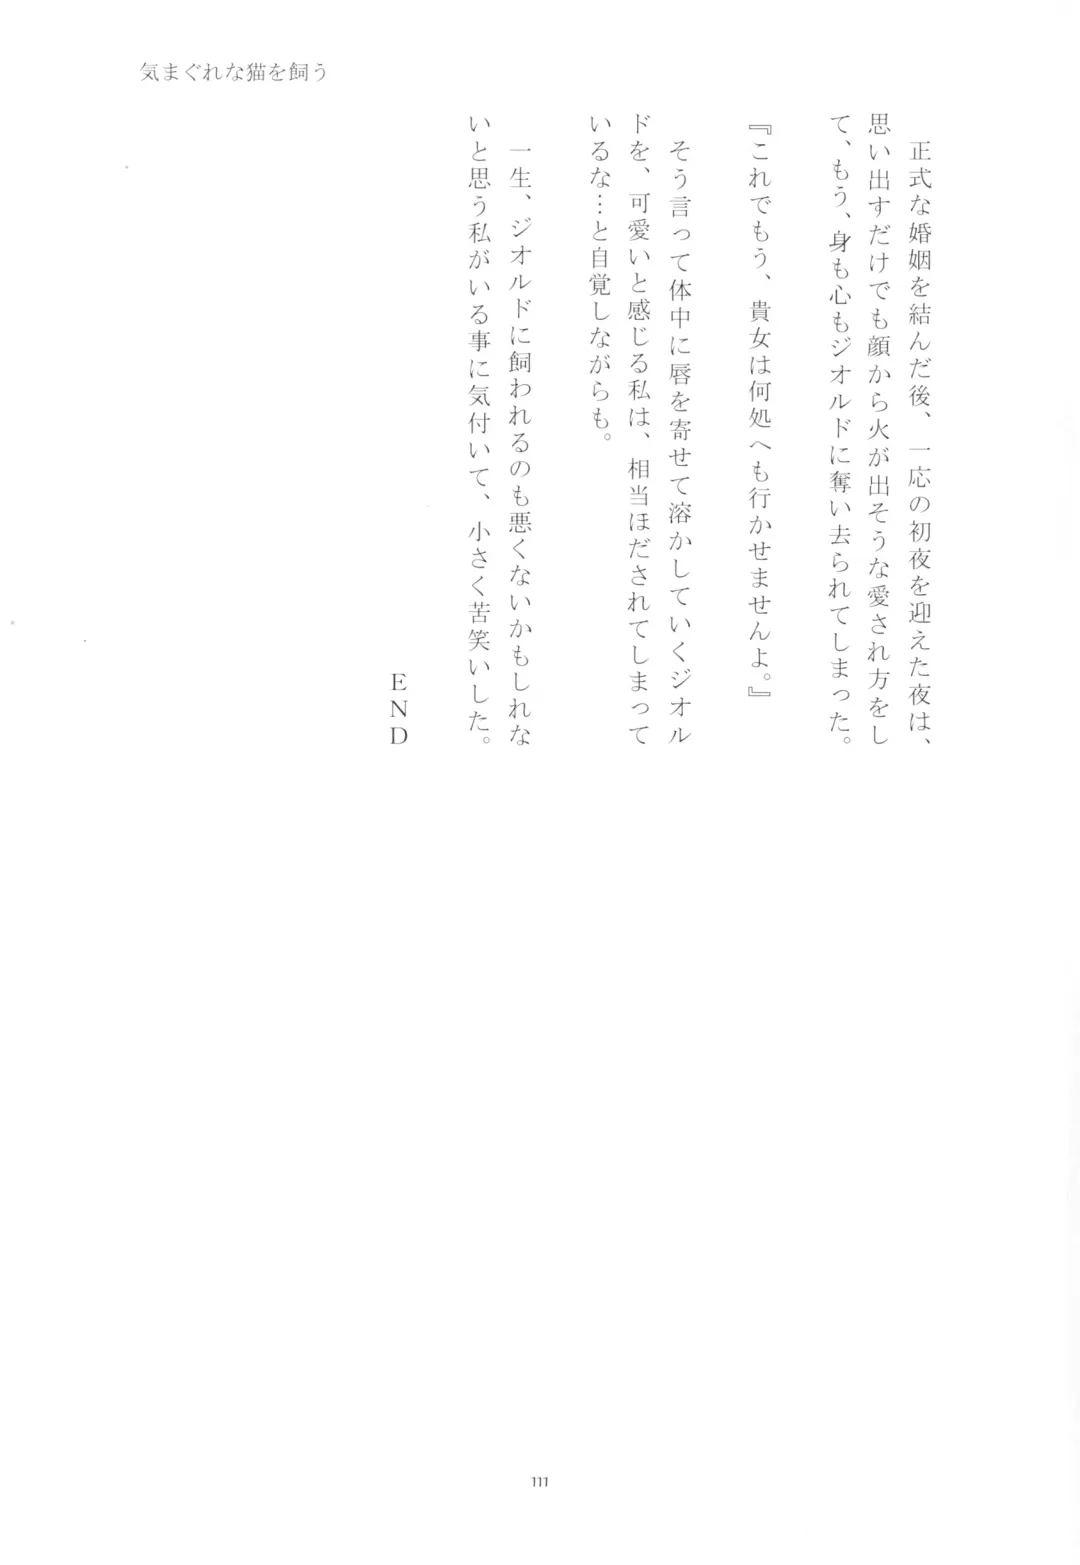 気まぐれな猫を飼う
正式な婚姻を結んだ後、一応の初夜を迎えた夜は、
思い出すだけでも顔から火が出そうな愛され方をし
て、もう、身も心もジオルドに奪い去られてしまった。
『これでもう、貴女は何処へも行かせませんよ。』
そう言って体中に唇を寄せて溶かしていくジオル
ドを、可愛いと感じる私は、相当ほだされてしまって
いるな…と自覚しながらも。
一生、ジオルドに飼われるのも悪くないかもしれな
いと思う私がいる事に気付いて、小さく苦笑いした。
END
111